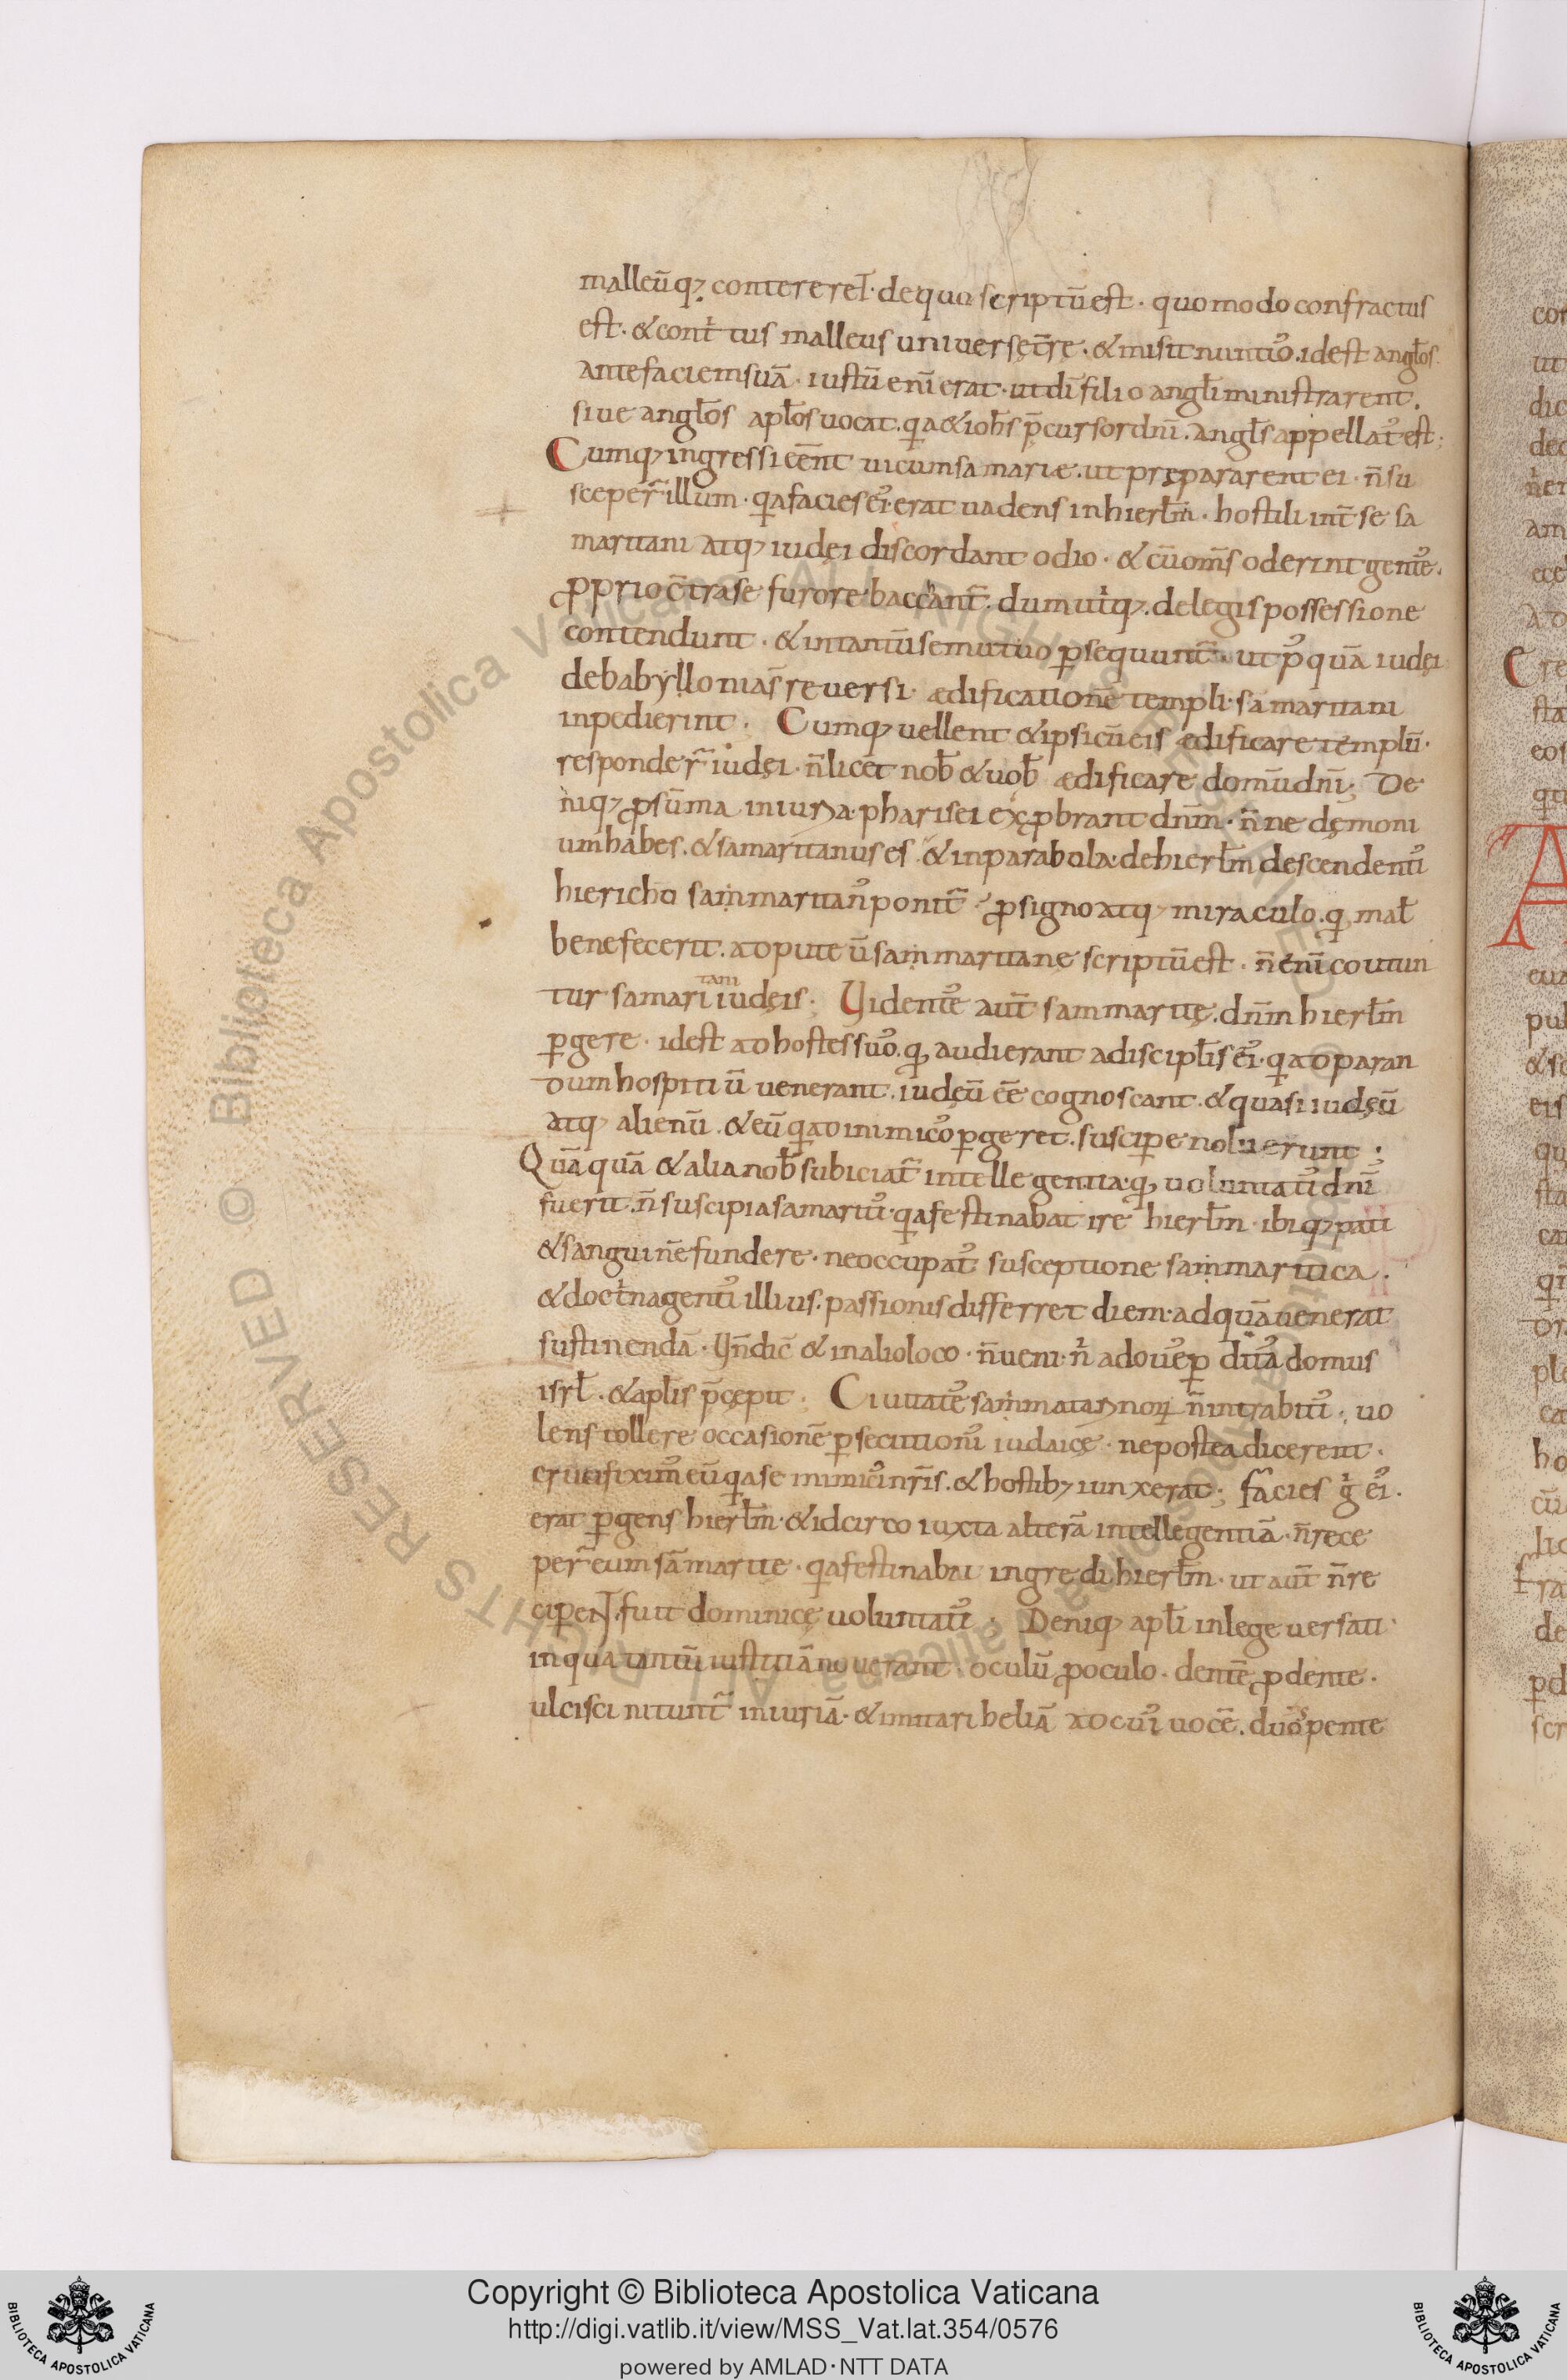 malleūq; contereret. de quo scriptū est. quomodo confractus
est. & cont͛tus malleus universę tr̄ę. & misit nuntiosꝰ. id est angl̄os
ante faciem suā. iustū enī erat. ut dī filio angl̄i ministrarent.
sive angl̄os apl̄os vocat. q̄a & ioħs p̄cursor dn̄i. angl̄s appellatꝰ est;
Cumq; ingressi eēnt vicum samariæ. ut prępararent ei. n̄ su
sceper̄ illum. q̄a facies eiꝰ erat vadens in hierl̄m. hostili int̄ se sa
maritani atq; iudęi discordant odio. & cū om̄s oderint genteꝰ.
ꝓprio c̄tra se furore baccant̄. dum utͥq;. de legis possessione
contendunt. & in tantū se mutuo ꝑsequunt̄. ut pꝰ quā iudęi
de babyllonia s̄ reversi. ædificationē templi samaritani
inpedierint. Cumq; vellent & ipsi cū eis ædificare templū.
responder̄ iudęi. n̄ licet nob̄ & vob̄ ædificare domū dn̄i; De
niq; ꝓ sūma iniuria pharisei exꝓbrant dn̄m. n̄ne dęmoni
um habes. & samaritanus es & in parabola de hierl̄m descendentiꝰ
hiericho sammaritanꝰ ponit̄. ꝓ signo atq; miraculo. q̄ mal̄
benefecerit. ad pute ū sammaritanę scriptū est. n̄ enī coutun
tur samaritani iudęis; Videnteꝰ aut̄ sammaritę. dn̄m hierl̄m
ꝑgere. id est ad hostes suoꝰ. q̄ audierant a discipl̄is eiꝰ. q̄a ad paran
dum hospitiū venerant. iudęū eē cognoscant. & quasi iudęū
atq; alienū. & eū q̄ ad inimicoꝰ ꝑgeret. suscipe noluerunt.
Quāquā & alia nob̄ subiciat̄ intellegentia. q̄ voluntatiꝰ dn̄i
fuerit. n̄ suscipi a samaritiꝰ. q̄a festinabat ire hierl̄m. ibiq; pati
& sanguinē fundere. ne occupatꝰ susceptione sammaritica.
& doctͥna gentiꝰ illius. passionis differret diem. ad quā venerat
sustinendā. Un̄ dic̄ & in alio loco. n̄ veni. nͥ ad oveꝰ ꝑditaꝰ domus
isrl̄. & apl̄is p̄cępit. Civitateꝰ sammataritanoꝝ n̄ intrabitiꝰ. vo
lens tollere occasionē ꝑsecutioniꝰ iudaicę. ne postea dicerent.
crucifiximꝰ eū q̄a se inimiciꝰ nr̄is. & hostib; iunxerat; facies gͥ eiꝰ.
erat ꝑgens hierl̄m. & idcirco iuxta alterā intellegentiā. n̄ rece
per̄ eum sāmaritę. q̄a festinabat ingredi hierl̄m. ut aut̄ n̄ re
cipeNT. fuit dominicę voluntatiꝰ. Deniq; apl̄i in lege versati
in qua tantū iustitiā noverant. oculū ꝓ oculo. dentē ꝓ dente.
ulcisci nitunt̄ iniuriā. & imitari heliā ad cuiꝰ vocē. duo pente
Copyright © Biblioteca Apostolica Vaticana
http://digi.vatlib.it/view/MSS_Vat.lat.354/0576
powered by AMLAD·NTT DATA